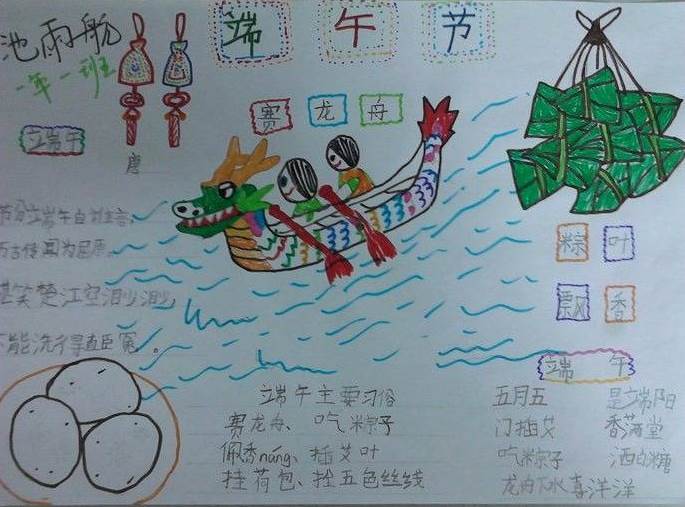 池雨航
一年一班
端午节
赛龙舟
端午
唐
节分端午自谁言,
万古传闻为屈原。
堪笑楚江空渺渺,
不能洗得直臣冤。
粽叶
飘香
端午
端午主要习俗
赛龙舟、吃粽子
佩香náng、插艾叶
挂荷包、拴五色丝线
五月五 是端阳
门插艾 香满堂
吃粽子 洒白糖
龙舟下水喜洋洋